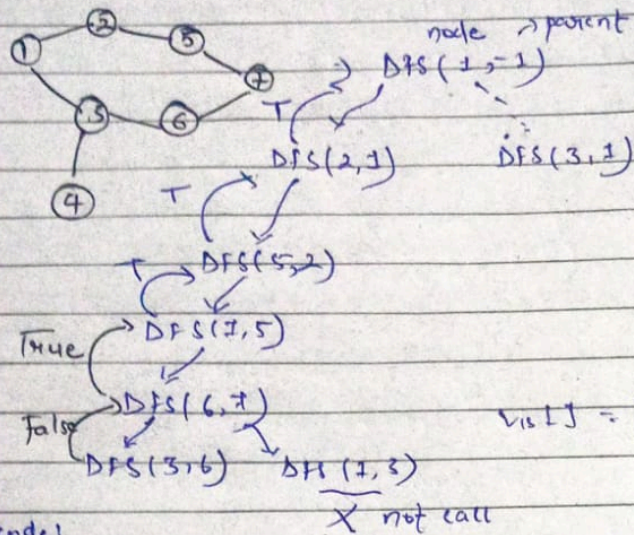 2
5
1
7
3
6
4
node → parent
DFS(1,-1)
T
DFS(2,1) DFS(3,1)
T
DFS(5,2)
T
DFS(7,5)
True
DFS(6,7)
False
vis[] =
DFS(3,6) DFS(1,3)
X not call